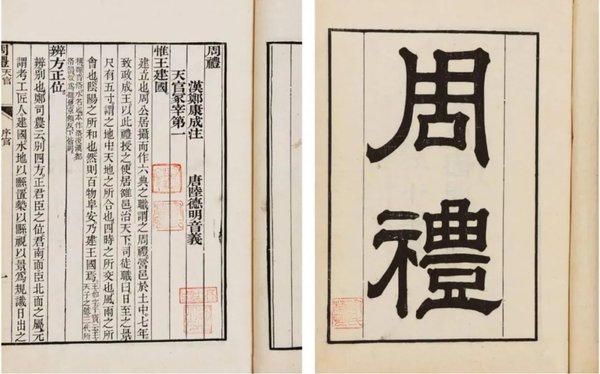 周禮
周禮
漢鄭康成注　唐陸德明音義
天官冢宰第一
惟王建國
建立也周公居攝而作六典之職謂之周禮營邑於土中七年
致政成王以此禮授之使居雒邑治天下司徒職曰日至之景
尺有五寸謂之地中天地之所合也四時之所交也風雨之所
會也陰陽之所和也然則百物阜安乃建王國焉
辨方正位
辨別也鄭司農云別四方正君臣之位君南面臣北面之屬元
謂考工匠人建國水地以縣置槷以縣視以景爲規識日出之
周禮
天官
序官
一